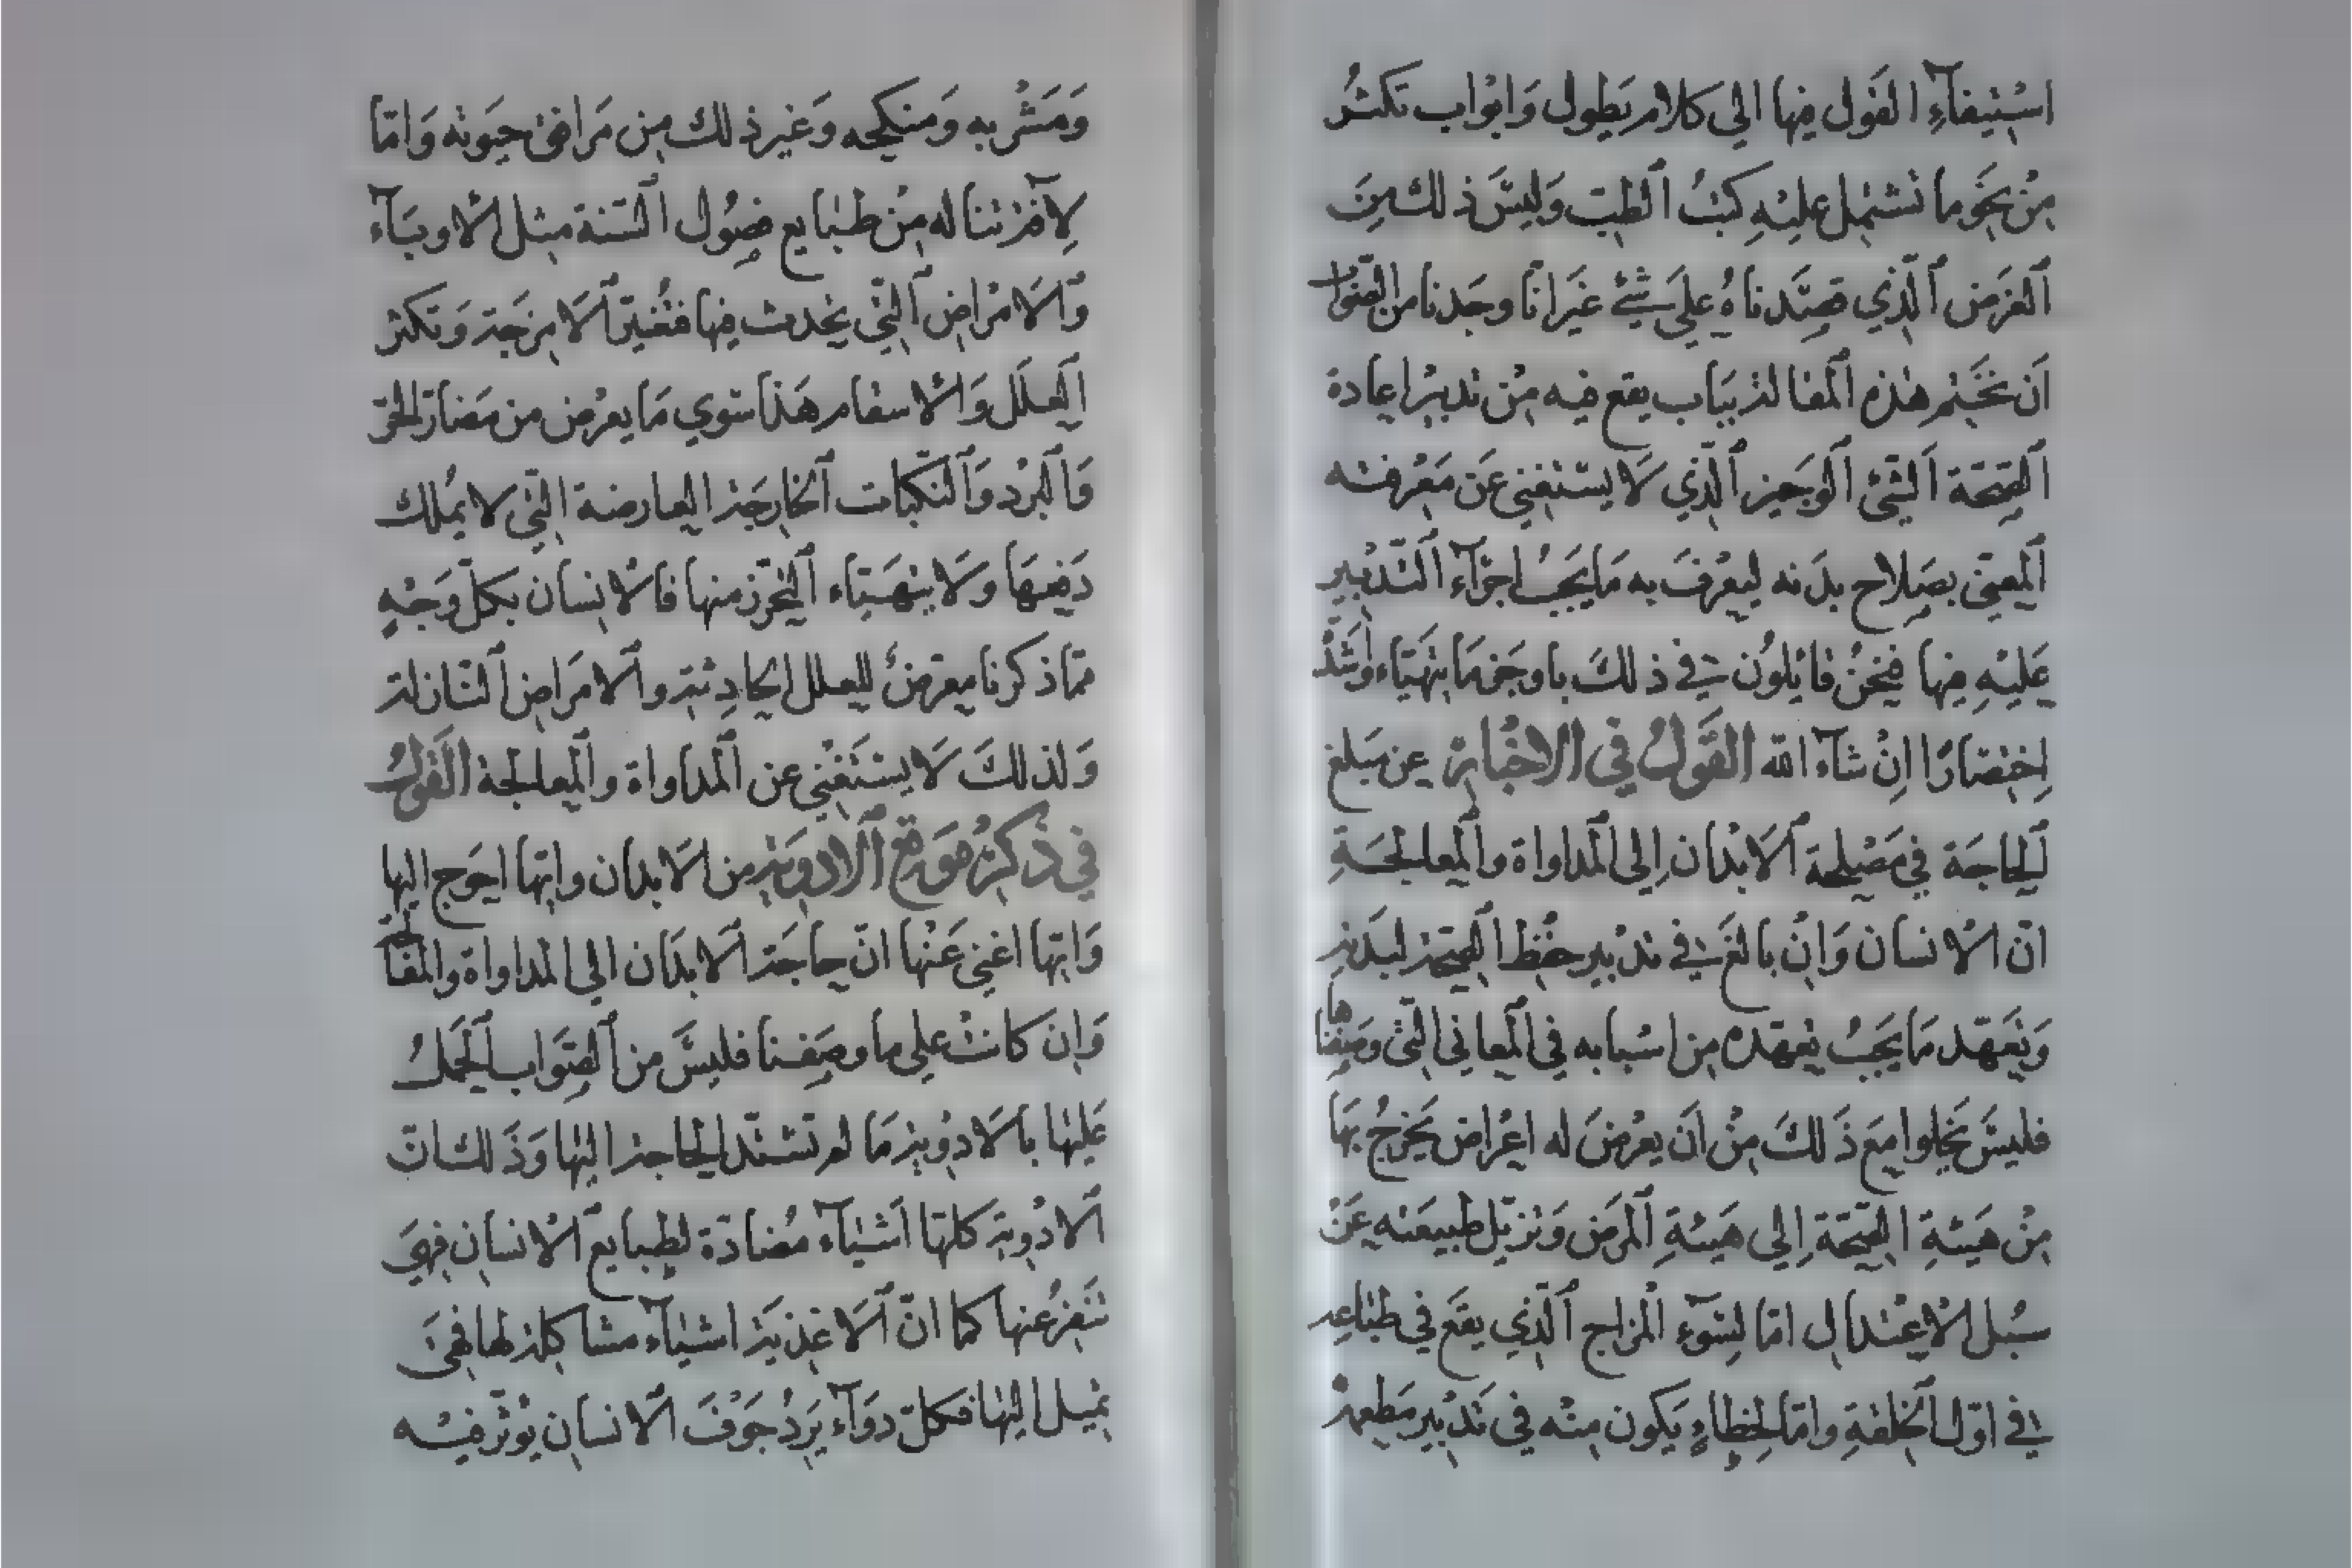 اسْتِيفآءِ القَول فيها الي كلام يَطول وَابْواب تكثرُ
مِنْ نَحْوما تشتمل عليْهِ كتبُ ٱلطبّ وَليسَ ذلك مِنَ
ٱلغَرَض ٱلّذي قصَدناهُ علىَ شيْء غَيرَ انّا وجَدنا من الصّواب
اَن نَختم هٰذه ٱلمقالة بباب يقع فيه مِنْ تدبير اعادة
ٱلصّحّة ٱلشئ ٱلوَجيز ٱلّذي لَا يستغني عَن مَعْرفته
ٱلمعنىّ بصَلاح بدَنه ليعْرفَ به مَا يَجبُ اجرآء ٱلتّدبْير
عَليْهِ فيها فنحنُ قايلوُن في ذلكَ باوجَز مَا يتهَيّاء واَشَدّ
اِختصَارًا اِنْ شآءَ الله القَولُ في الاخْبَار عن مَبلغ
ٱلحاجَة في مَصْلحة ٱلاَبْدان اِلى ٱلمداواة وٱلمعالجَةِ
انّ اْلانسان وَان بالغَ في تدبير حفْظ ٱلصّحّة لبَدَنه
وَتعَهّد مَا يَجبُ تعهّده من اسْبابه في ٱلمعاني الّتي وصَفناها
فليسَ يَخلوا معَ ذَلكَ مِنْ اَن يعرْضَ له اعْراض يَخرجُ بهَا
مِنْ هَيئةِ الصّحّة اِلى هَيئةِ ٱلمرَض وَتزيل طبيعَته عَنْ
سُبل اْلاِعْتدال امّا لِسُوۤءِ اْلمزاج ٱلّذي يقَع في طباعه
في اوّل ٱلخلقةِ وامّا لِخطاءٍ يَكون منْه في تَدْبير مَطعمه
وَمَشْربه وَمَنكحه وَغير ذلك من مَرافق حيَوته وَامّا
لِآفة تناله مِنْ طبايع فصُول ٱلسّنة مثل اْلاوبَآء
وَٱلاَمْراض ٱلّتي تحدث فيها فتُغيرّ ٱلاَمزجَة وَتكثر
ٱلعلَل وَاْلاسقام هَذا سوي مَا يعرُض من مَضارّ الحرّ
وَٱلبَرْد وَٱلنّكبات ٱلخارجَة العارضة الّتي لا يمُلك
دَفعهَا وَلَا يتهَيّاء ٱلتّحرّز منها فاْلانسان بكلّ وَجْهٍ
ممّا ذكرنا معرّضٌ للعلل الحادِثة وٱلامرَاض ٱلنّازلة
وَلذلكَ لَا يسْتَغْني عن ٱلمداواة وٱلمعالجة القَولُ
في ذكْرِ مَوَقع ٱلادويَة من الاَبدان وايّها احوَج اليها
وَايّها اغني عَنْها انّ حاجَة ٱلابدَان الي المداواة والمعالجة
وَان كانتْ علي ما وصَفنا فليسَ من ٱلصّوَاب ٱلحَملُ
عَليْها باْلاَدوْية مَا لم تشتدّ الحاجة اليْها وَذَلك انّ
ٱلادْوية كلهّا اَشيآء مُضادّة لطبايع ٱلاْنسان فهيَ
تنفرُ عنها كما انّ ٱلاَغذيَة اشيآء مشاكلة لها فهيَ
تميل اليْها فكلّ دوَآء يَردُ جَوْفَ ٱلانسان يؤثرّ فيْه